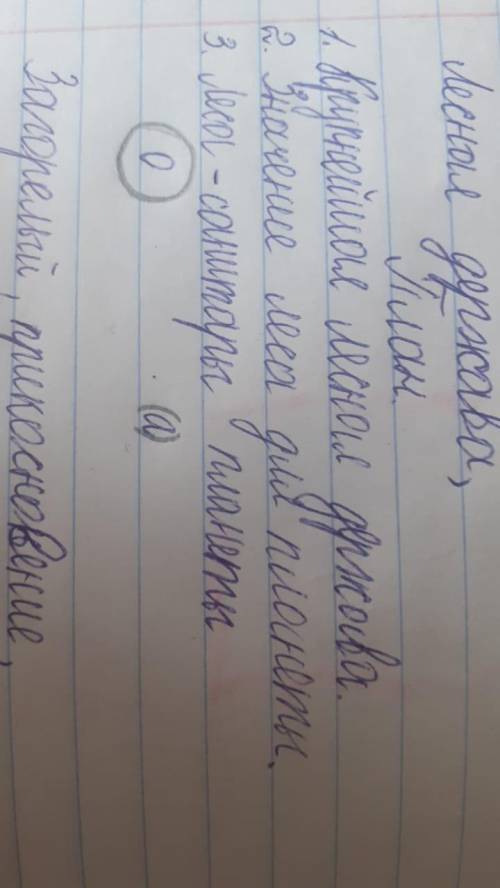 Лесная держава,
План.
1. Крупнейшая лесная держава.
2. Значение леса для планеты.
3. Леса - санитары планеты
о (а)
Загорелый, прикосновение,